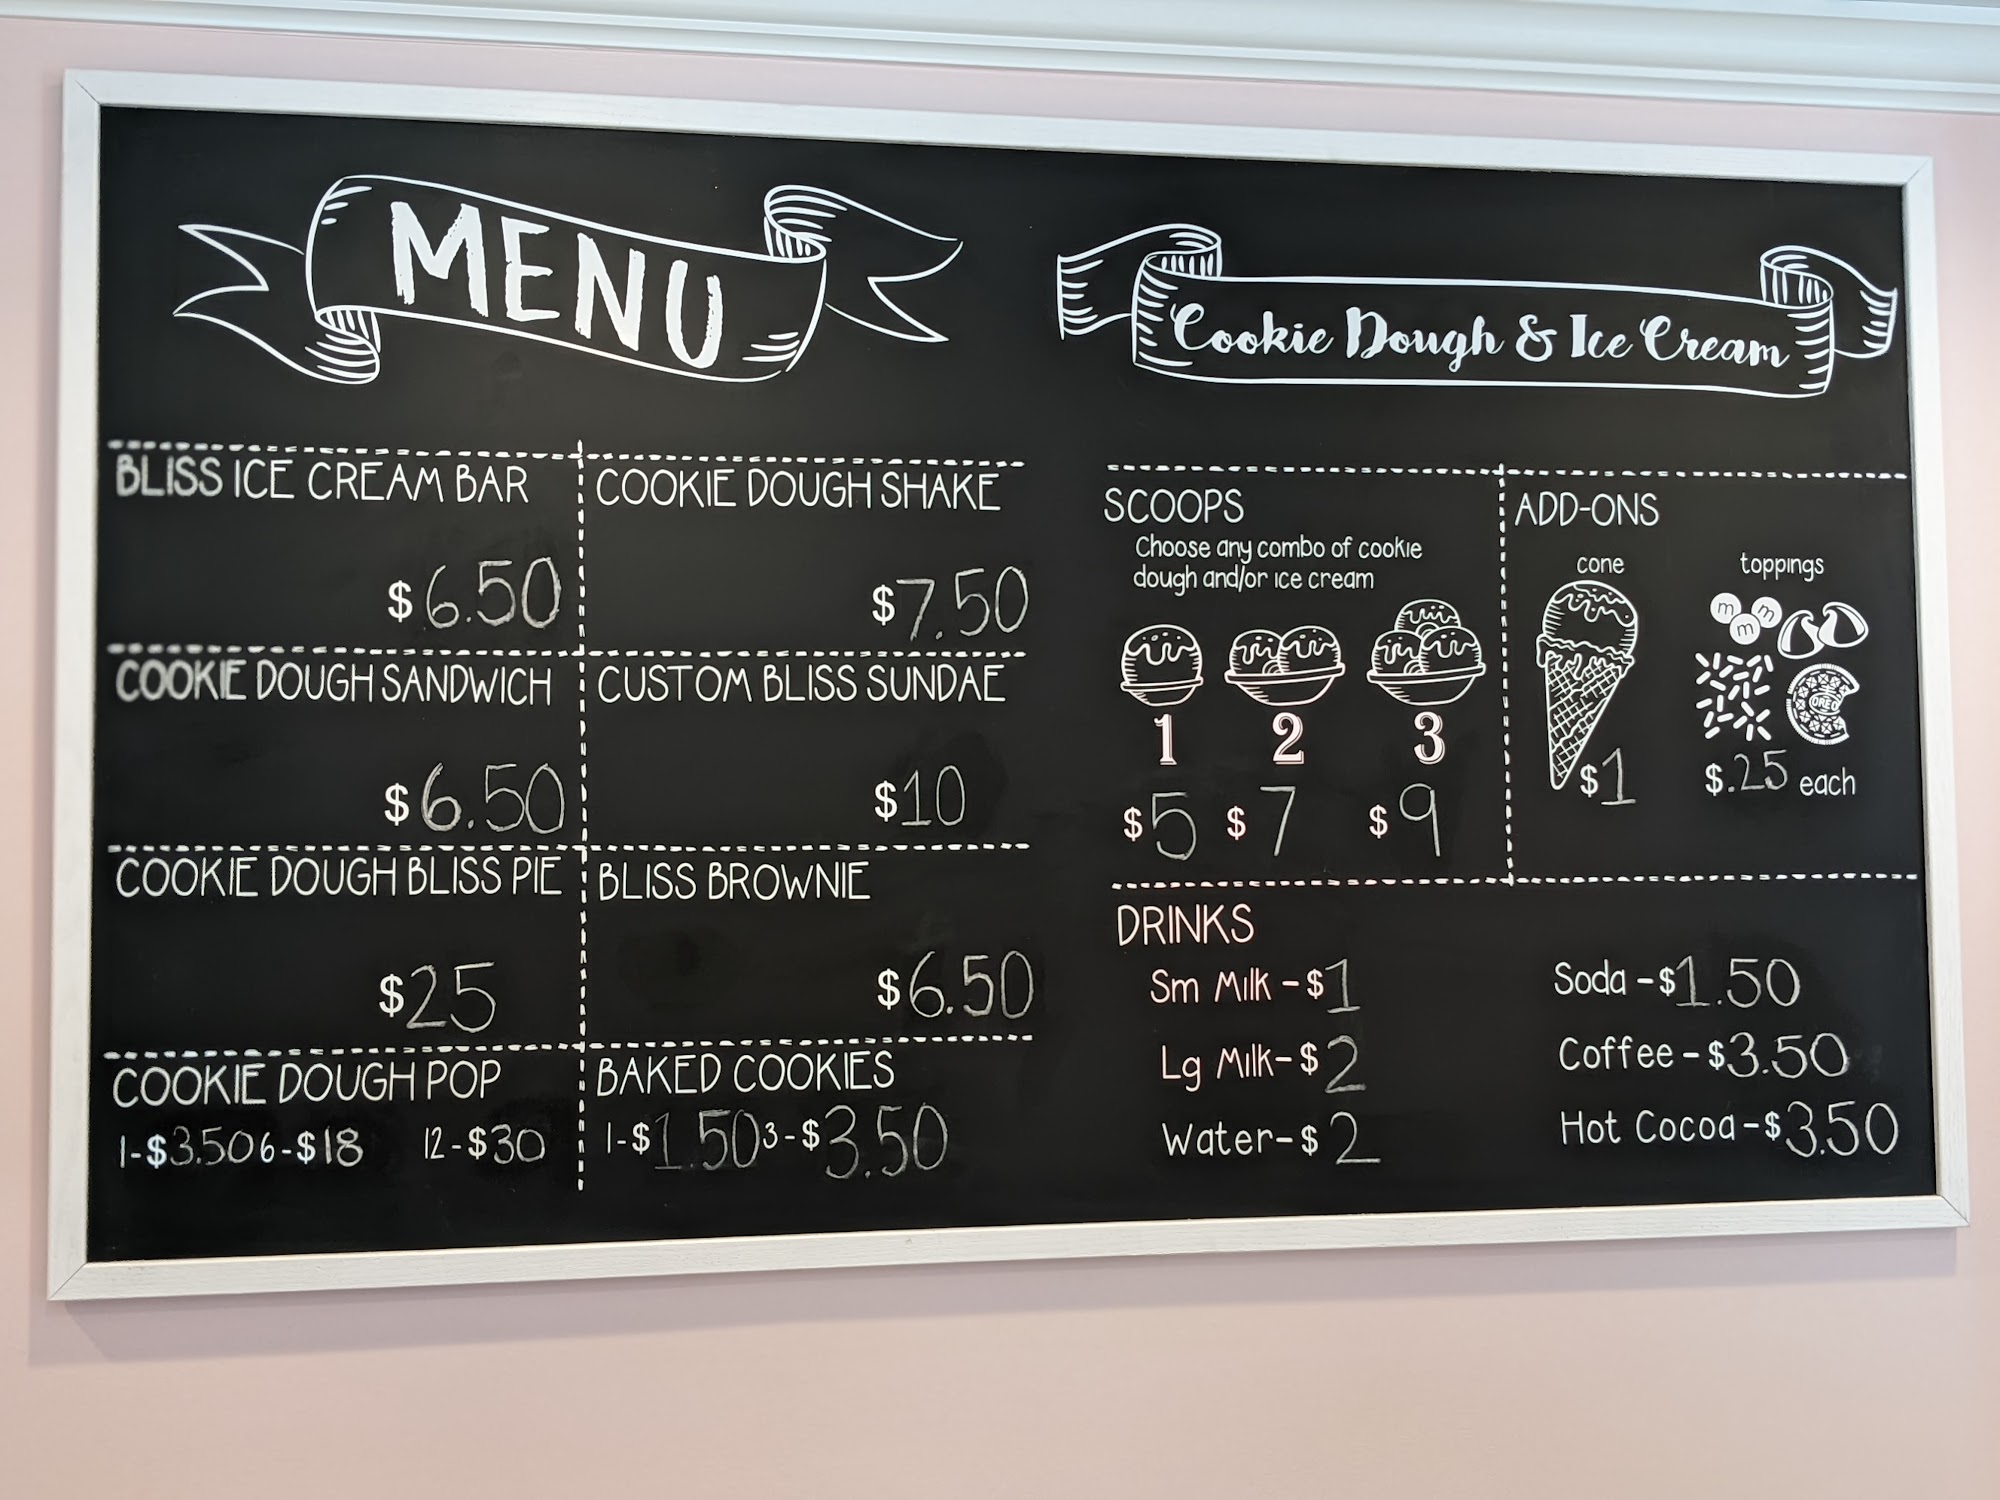 MENU
BLISS ICE CREAM BAR
$6.50
COOKIE DOUGH SHAKE
$7.50
COOKIE DOUGH SANDWICH
$6.50
CUSTOM BLISS SUNDAE
$10
COOKIE DOUGH BLISS PIE
$25
BLISS BROWNIE
$6.50
COOKIE DOUGH POP
1-$3.50 6-$18 12-$30
BAKED COOKIES
1-$1.50 3-$3.50
Cookie Dough & Ice Cream
SCOOPS
Choose any combo of cookie
dough and/or ice cream
1 2 3
$5 $7 $9
ADD-ONS
cone
$1
toppings
m m
m
OREO
$.25 each
DRINKS
Sm Milk - $1
Lg Milk - $2
Water - $2
Soda - $1.50
Coffee - $3.50
Hot Cocoa - $3.50